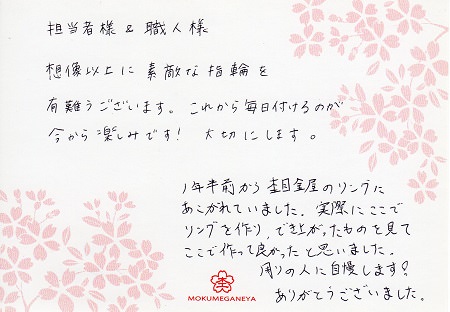 担当者様 & 職人様
想像以上に素敵な指輪を
有難うございます。これから毎日付けるのが
今から楽しみです! 大切にします。
1年半前から杢目金屋のリングに
あこがれていました。実際にここで
リングを作り、でき上がったものを見て
ここで作って良かったと思いました。
周りの人に自慢します?
ありがとうございました。
杢
MOKUMEGANEYA